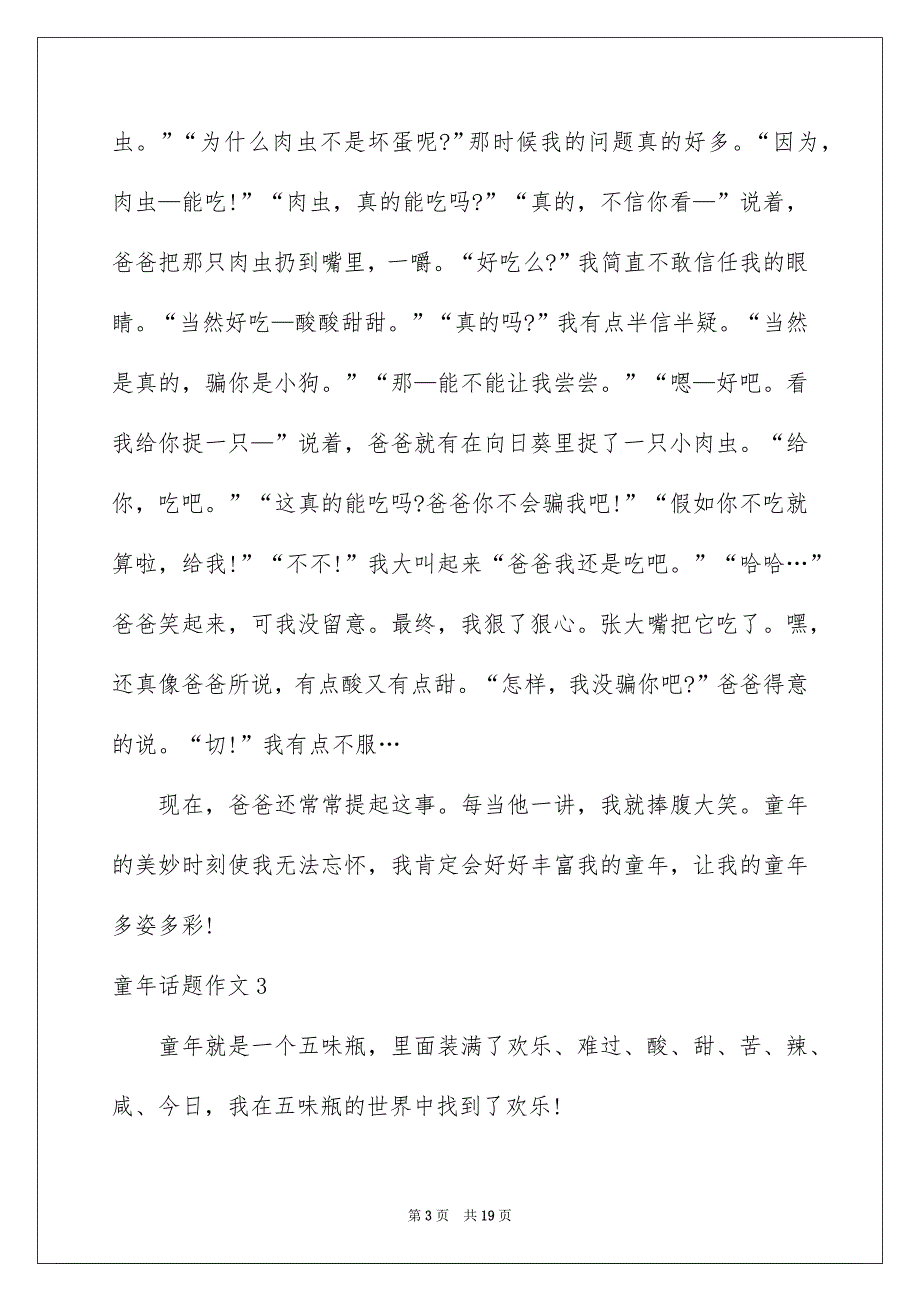 虫。”“为什么肉虫不是坏蛋呢?”那时候我的问题真的好多。“因为，
肉虫—能吃!”“肉虫，真的能吃吗?”“真的，不信你看—”说着，
爸爸把那只肉虫扔到嘴里，一嚼。“好吃么?”我简直不敢信任我的眼
睛。“当然好吃—酸酸甜甜。”“真的吗?”我有点半信半疑。“当然
是真的，骗你是小狗。”“那—能不能让我尝尝。”“嗯—好吧。看
我给你捉一只—”说着，爸爸就有在向日葵里捉了一只小肉虫。“给
你，吃吧。”“这真的能吃吗?爸爸你不会骗我吧!”“假如你不吃就
算啦，给我!”“不不!”我大叫起来“爸爸我还是吃吧。”“哈哈…”
爸爸笑起来，可我没留意。最终，我狠了狠心。张大嘴把它吃了。嘿，
还真像爸爸所说，有点酸又有点甜。“怎样，我没骗你吧?”爸爸得意
的说。“切!”我有点不服…
现在，爸爸还常常提起这事。每当他一讲，我就捧腹大笑。童年
的美妙时刻使我无法忘怀，我肯定会好好丰富我的童年，让我的童年
多姿多彩!
童年话题作文 3
童年就是一个五味瓶，里面装满了欢乐、难过、酸、甜、苦、辣、
咸、今日，我在五味瓶的世界中找到了欢乐!
第 3 页 共 19 页